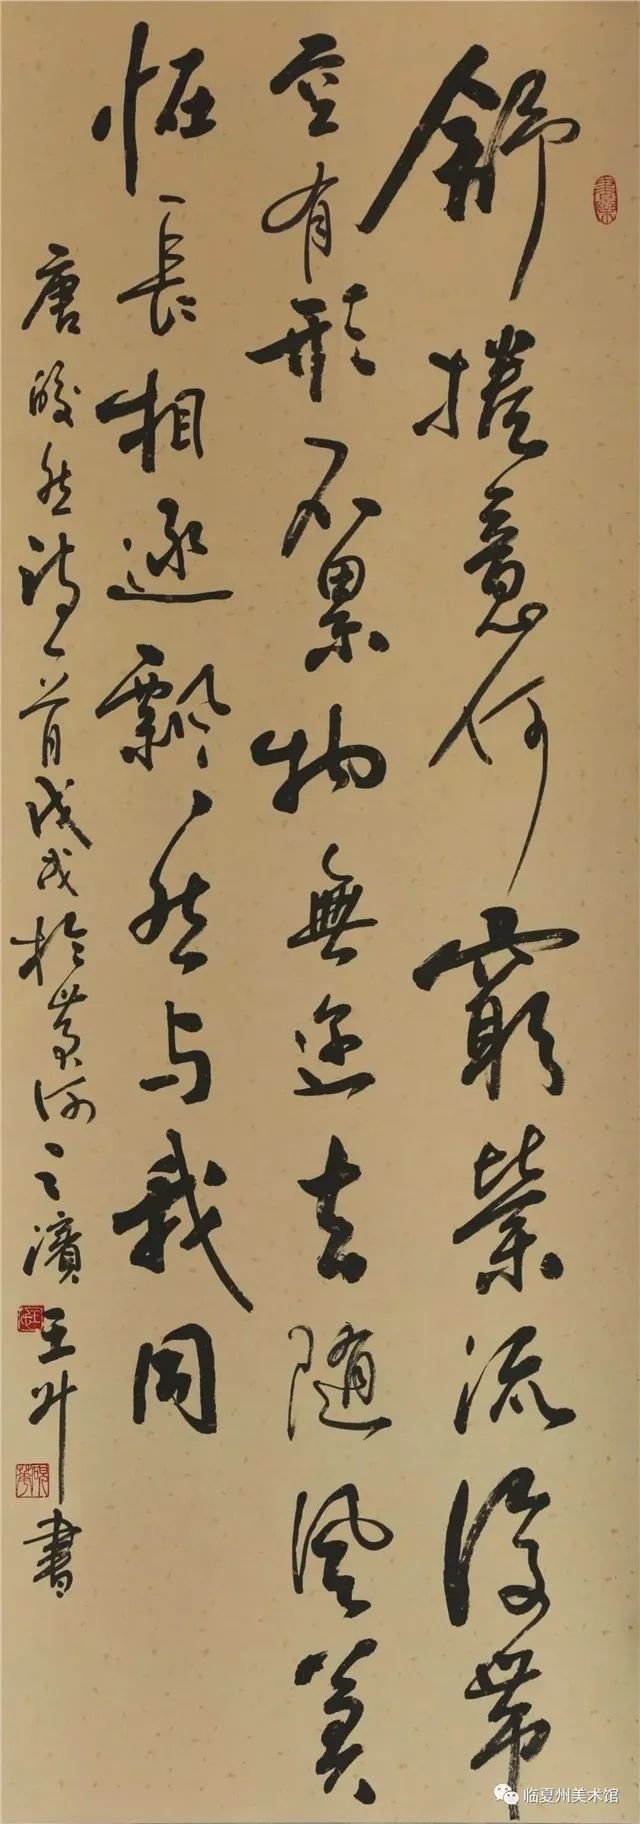 舒捲意何窮縈流復帶
空有形不累物無迹去隨風莫
怪長相逐飄然与我同
唐皎然詩一首戊戌於黃河之濱王升書
临夏州美术馆